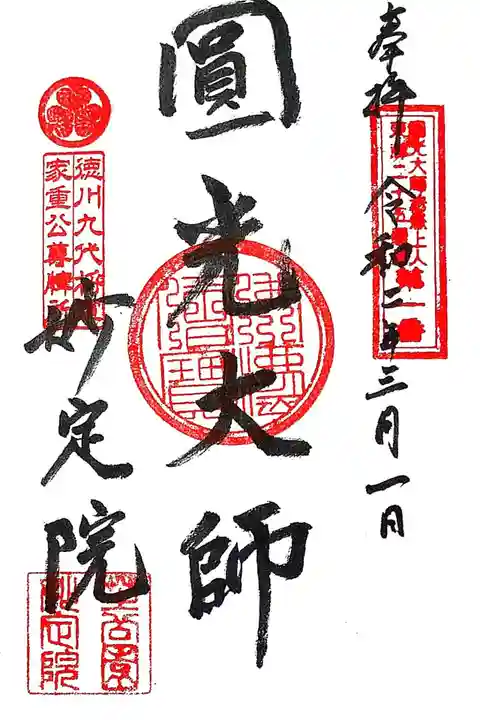 奉拝 令和二年三月一日
圓光大師
佛法僧寳
徳川九代将軍
家重公尊牌所
妙定院
妙定院